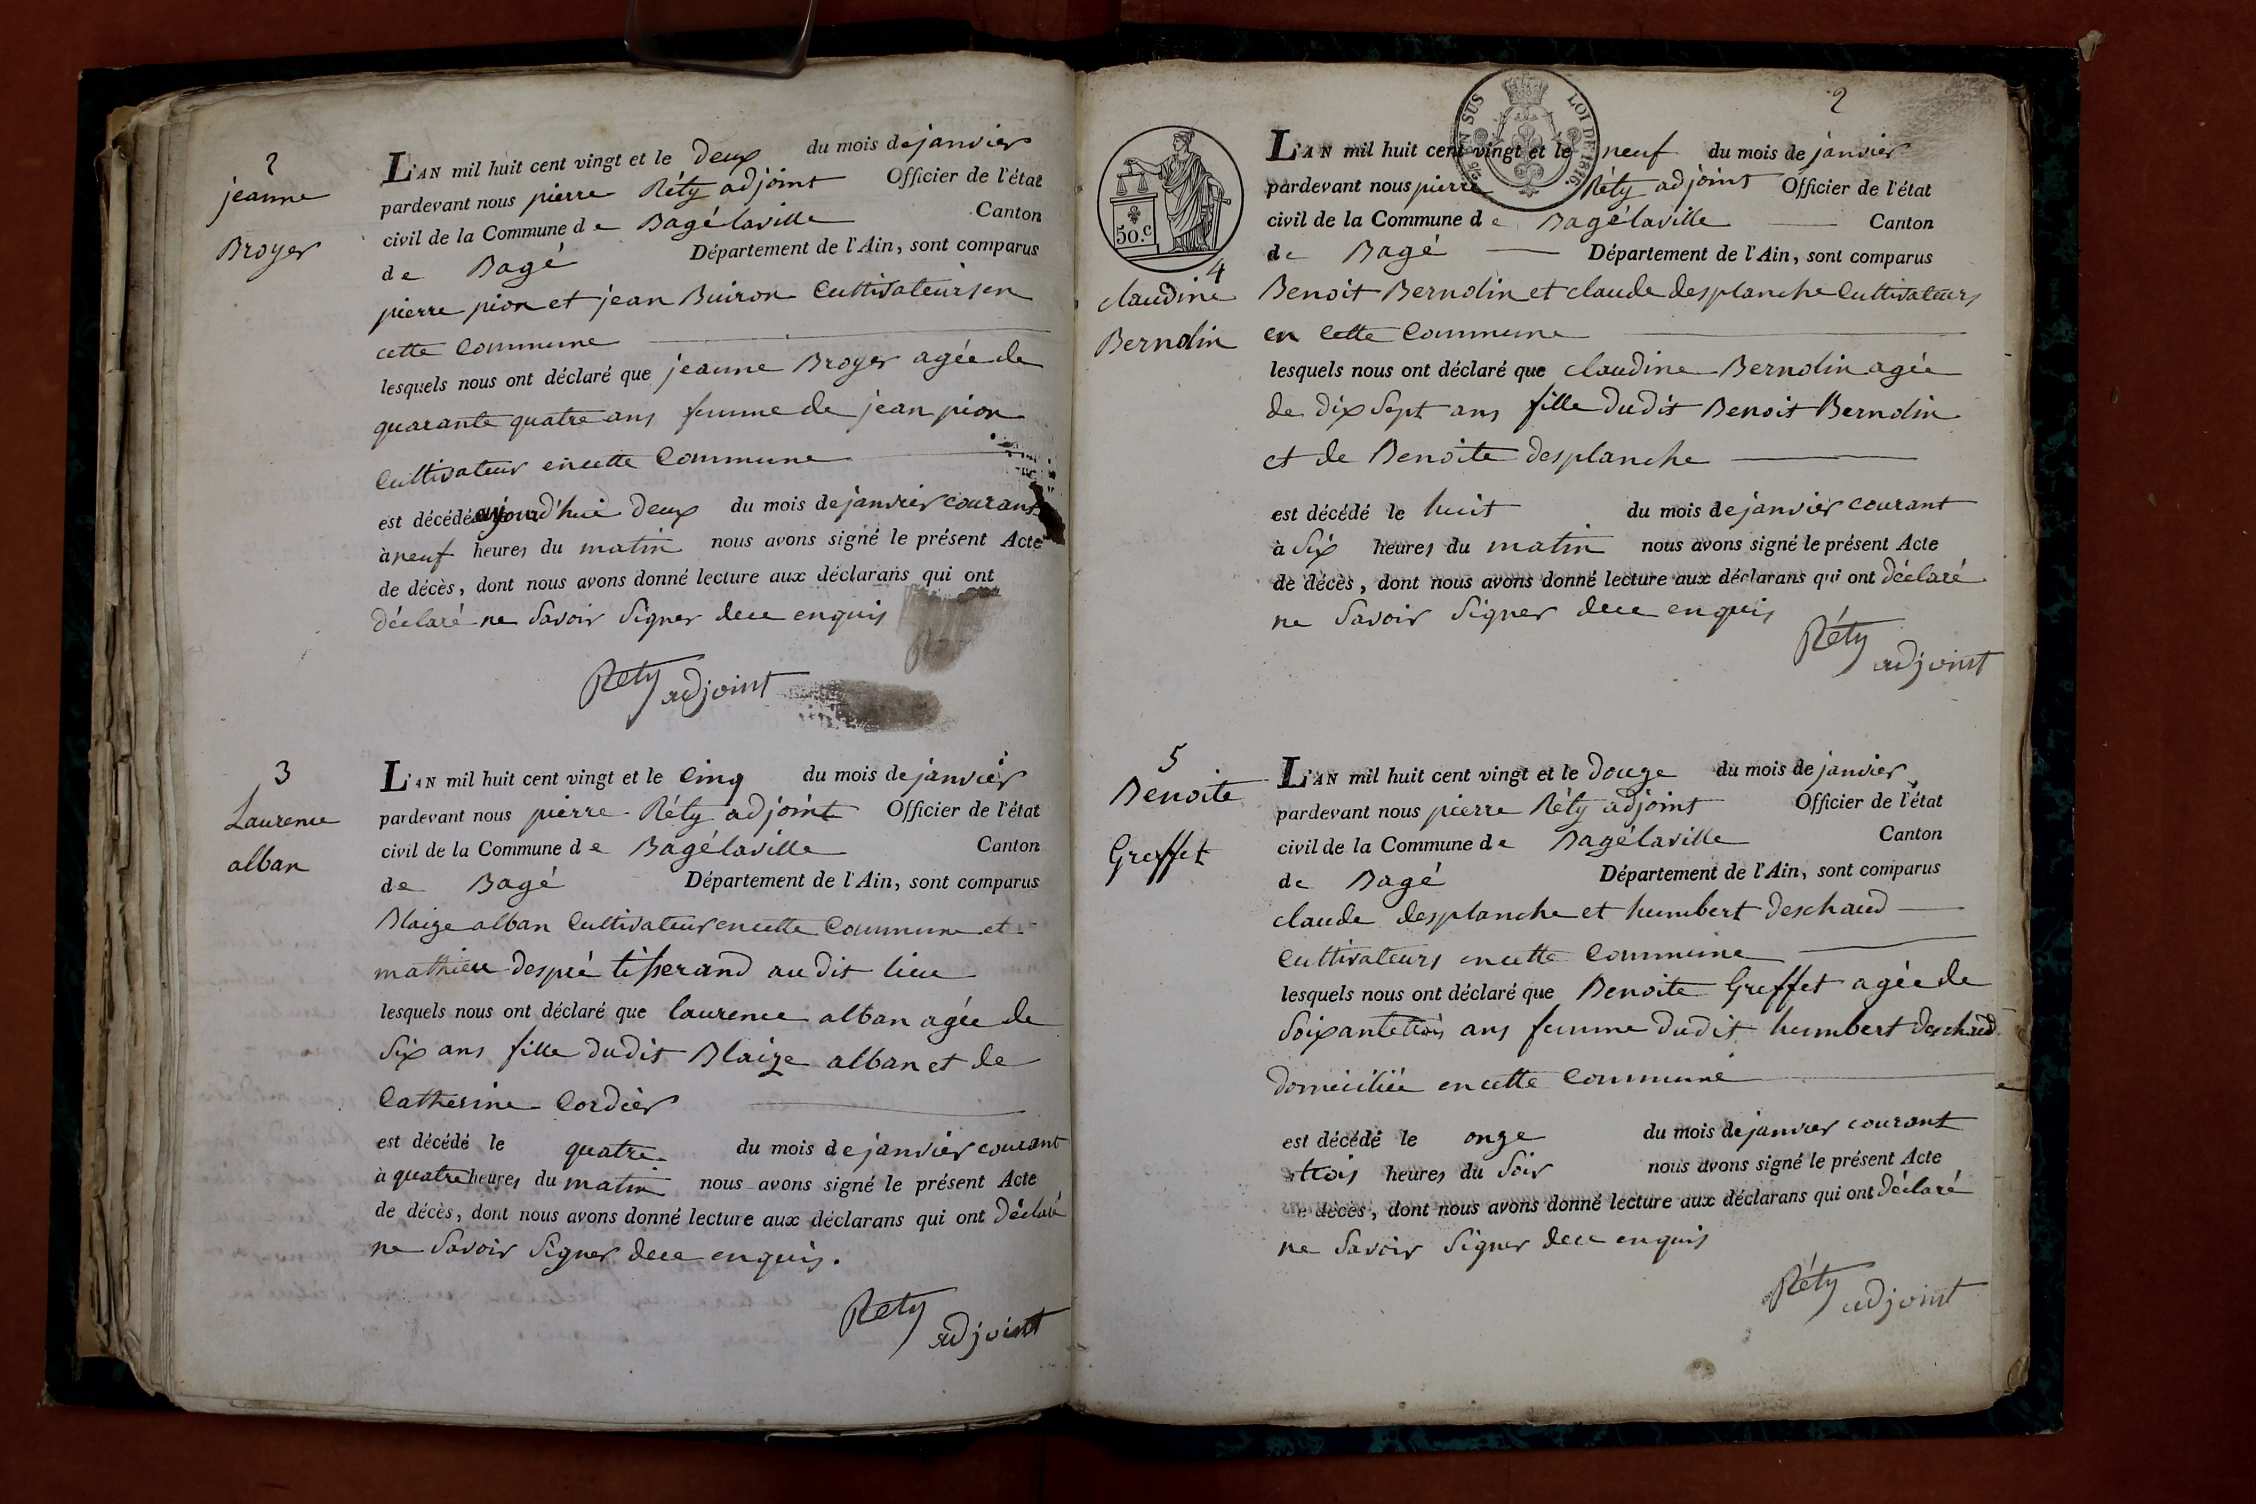 2
jeanne
Broyer
L'AN mil huit cent vingt et le deux du mois de janvier
pardevant nous pierre Réty adjoint Officier de l'état
civil de la Commune de Bagélaville Canton
de Bagé Département de l'Ain, sont comparus
pierre pion et jean Buiron Cultivateurs en
cette Commune
lesquels nous ont déclaré que jeanne Broyer agée de
quarante quatre ans femme de jean pion
Cultivateur en cette Commune
est décédé aujourd'hui deux du mois de janvier courant
à neuf heures du matin nous avons signé le présent Acte
de décès, dont nous avons donné lecture aux déclarans qui ont
déclaré ne Savoir Signer de ce enquis
Réty adjoint
3
Laurence
alban
L'AN mil huit cent vingt et le Cinq du mois de janvier
pardevant nous pierre Réty adjoint Officier de l'état
civil de la Commune de Bagélaville Canton
de Bagé Département de l'Ain, sont comparus
Blaize alban Cultivateur en cette Commune et
mathieu despré tisserand au dit lieu
lesquels nous ont déclaré que laurence alban agée de
Six ans fille dudit Blaize alban et de
Catherine Cordier
est décédé le quatre du mois de janvier courant
à quatre heures du matin nous avons signé le présent Acte
de décès, dont nous avons donné lecture aux déclarans qui ont déclaré
ne Savoir Signer de ce enquis.
Réty adjoint
2
EN SUS
LOI DE 1816.
50.c
4
claudine
Bernolin
L'AN mil huit cent vingt et le neuf du mois de janvier
pardevant nous pierre Réty adjoint Officier de l'état
civil de la Commune de Bagélaville Canton
de Bagé Département de l'Ain, sont comparus
Benoit Bernolin et claude desplanche Cultivateurs
en Cette Commune
lesquels nous ont déclaré que claudine Bernolin agée
de dix Sept ans fille dudit Benoit Bernolin
et de Benoite desplanche
est décédé le huit du mois de janvier courant
à Six heures du matin nous avons signé le présent Acte
de décès, dont nous avons donné lecture aux déclarans qui ont déclaré
ne Savoir Signer de ce enquis
Réty adjoint
5
Benoite
Greffet
L'AN mil huit cent vingt et le douze du mois de janvier
pardevant nous pierre Réty adjoint Officier de l'état
civil de la Commune de Bagélaville Canton
de Bagé Département de l'Ain, sont comparus
claude desplanche et humbert deschaud
Cultivateurs en cette Commune
lesquels nous ont déclaré que Benoite Greffet agée de
Soixante trois ans femme dudit humbert deschaud
domiciliée en cette Commune
est décédé le onze du mois de janvier courant
à trois heures du Soir nous avons signé le présent Acte
de décès, dont nous avons donné lecture aux déclarans qui ont déclaré
ne Savoir Signer de ce enquis
Réty adjoint